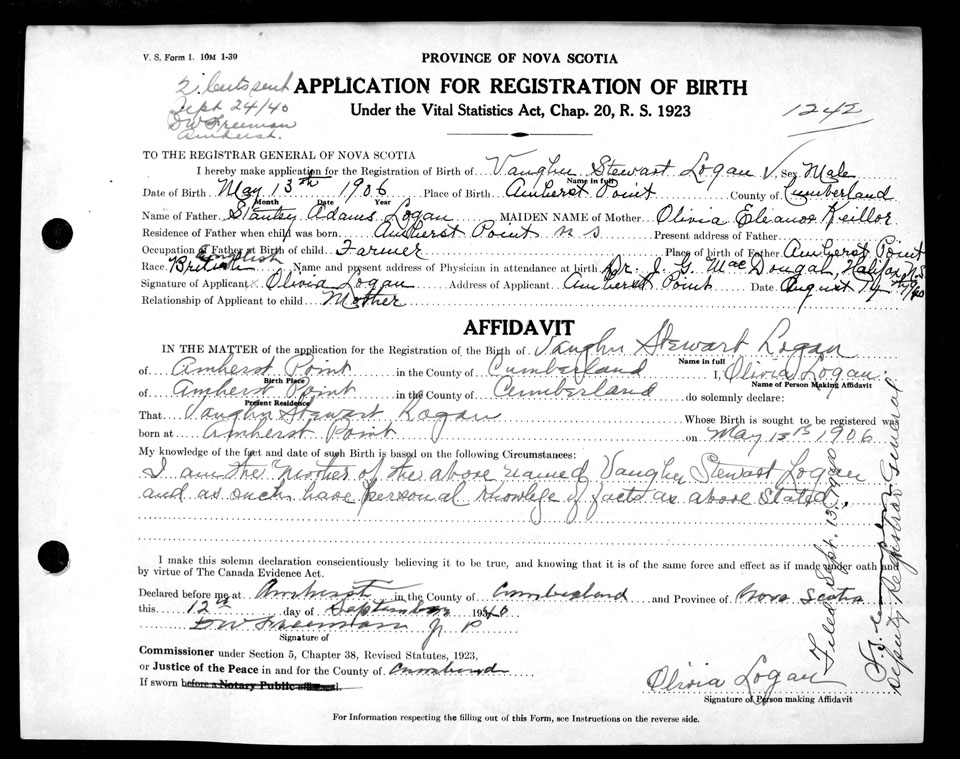 V. S. Form 1. 10M 1-39
PROVINCE OF NOVA SCOTIA
2 Certs sent
Sept 24/40
D W Freeman
Amherst.
APPLICATION FOR REGISTRATION OF BIRTH
Under the Vital Statistics Act, Chap. 20, R. S. 1923
1242
TO THE REGISTRAR GENERAL OF NOVA SCOTIA
I hereby make application for the Registration of Birth of Vaughn Stewart Logan Sex Male
Name in full
Date of Birth May 13th 1906 Place of Birth Amherst Point County of Cumberland
Month Date Year
Name of Father Stanley Adams Logan MAIDEN NAME of Mother Olivia Eleanor Keillor
Residence of Father when child was born Amherst Point N S Present address of Father
Occupation of Father at Birth of child Farmer Place of birth of Father Amherst Point
Race English British Name and present address of Physician in attendance at birth Dr. J. G. MacDougah, Halifax N.S
Signature of Applicant Olivia Logan Address of Applicant Amherst Point Date August 14th 1940
Relationship of Applicant to child Mother
AFFIDAVIT
IN THE MATTER of the application for the Registration of the Birth of Vaughn Stewart Logan
Name in full
of Amherst Point in the County of Cumberland I, Olivia Logan
Birth Place Name of Person Making Affidavit
of Amherst Point in the County of Cumberland do solemnly declare:
Present Residence
That Vaughn Stewart Logan Whose Birth is sought to be registered was
born at Amherst Point on May 13th 1906
My knowledge of the fact and date of such Birth is based on the following Circumstances:
I am the Mother of the above named Vaughn Stewart Logan
and as such have personal knowlege of facts as above stated.
I make this solemn declaration conscientiously believing it to be true, and knowing that it is of the same force and effect as if made under oath and
by virtue of The Canada Evidence Act.
Declared before me at Amherst in the County of Cumberland and Province of Nova Scotia
this 12th day of September 1940
D W Freeman J P
Signature of
Commissioner under Section 5, Chapter 38, Revised Statutes, 1923,
or Justice of the Peace in and for the County of Cumberland
If sworn before a Notary Public affix seal.
Olivia Logan
Signature of Person making Affidavit
Filed Sept. 13, 1940
Deputy Registrar General
For Information respecting the filling out of this Form, see Instructions on the reverse side.